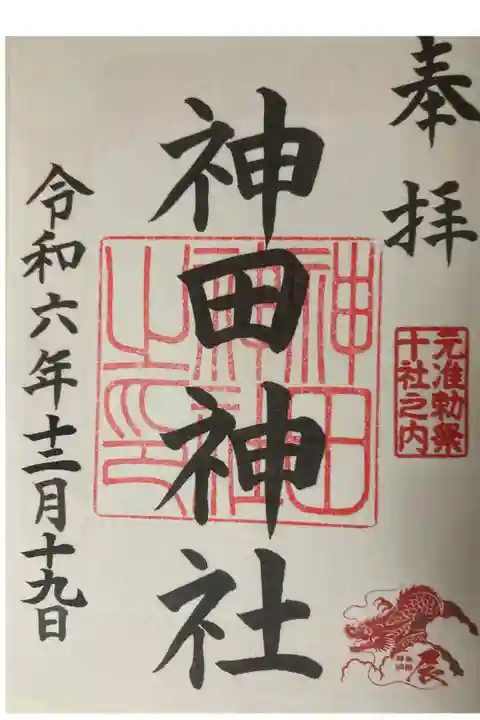 奉拝
元准勅祭
十社之内
神田神社
神田
神社
之印
辰
令和六年十二月十九日